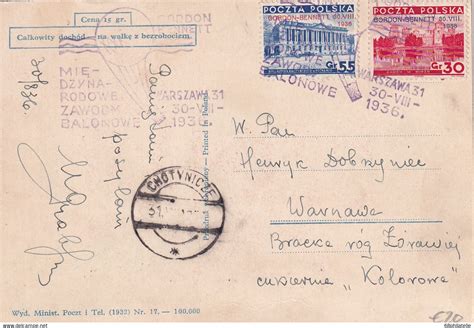 Cena 15 gr.
Całkowity dochód — na walkę z bezrobociem.
GORDON
BENNETT
MIĘ-
DZYNA-
RODOWE
ZAWODY
BALONOWE
WARSZAWA 31
30-VIII-
1936.
30/8 36.
Pamiętam
posyłam
POCZTA POLSKA
GORDON-BENNETT 30.VIII.
1936
Gr. 55
POCZTA POLSKA
GORDON-BENNETT 30.VIII.
1936
Gr 30
ZAWODY
BALONOWE
WARSZAWA 31
30-VIII-
1936.
W. Pan
Henryk Dobrzyniec
Warszawa
Bracka róg Żórawiej
cukiernia „Kolorowa"
CHOTYNICZE
Printed in Poland
Wyd. Minist. Poczt i Tel. (1932) Nr. 17. — 100,000
€20